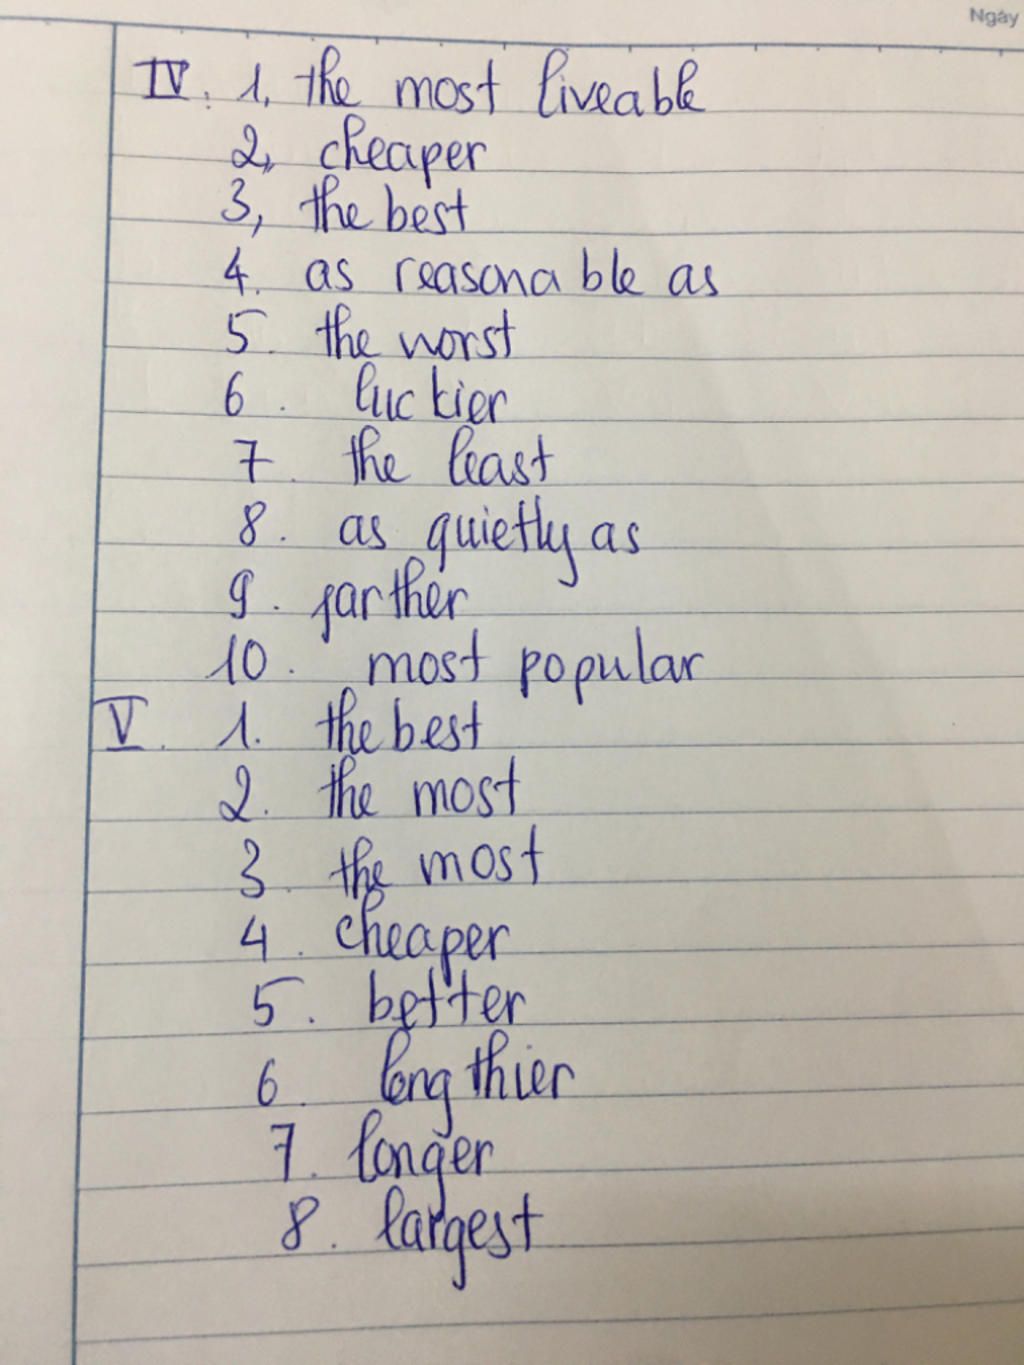 Ngày
IV. 1, the most liveable
2, cheaper
3, the best
4. as reasonable as
5. the worst
6. luckier
7. the least
8. as quietly as
9. farther
10. most popular
V. 1. the best
2. the most
3. the most
4. cheaper
5. better
6. lengthier
7. longer
8. largest